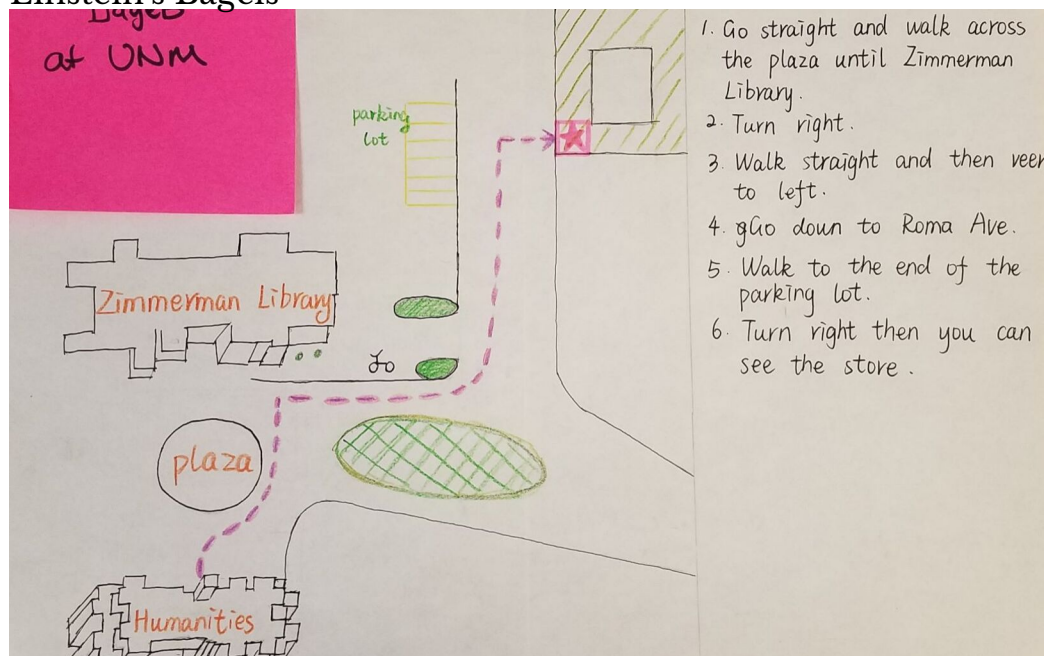 Einstein's Bagels
Bagels
at UNM
parking
lot
Zimmerman Library
plaza
Humanities
1. Go straight and walk across
the plaza until Zimmerman
Library.
2. Turn right.
3. Walk straight and then veer
to left.
4. gGo down to Roma Ave.
5. Walk to the end of the
parking lot.
6. Turn right then you can
see the store.